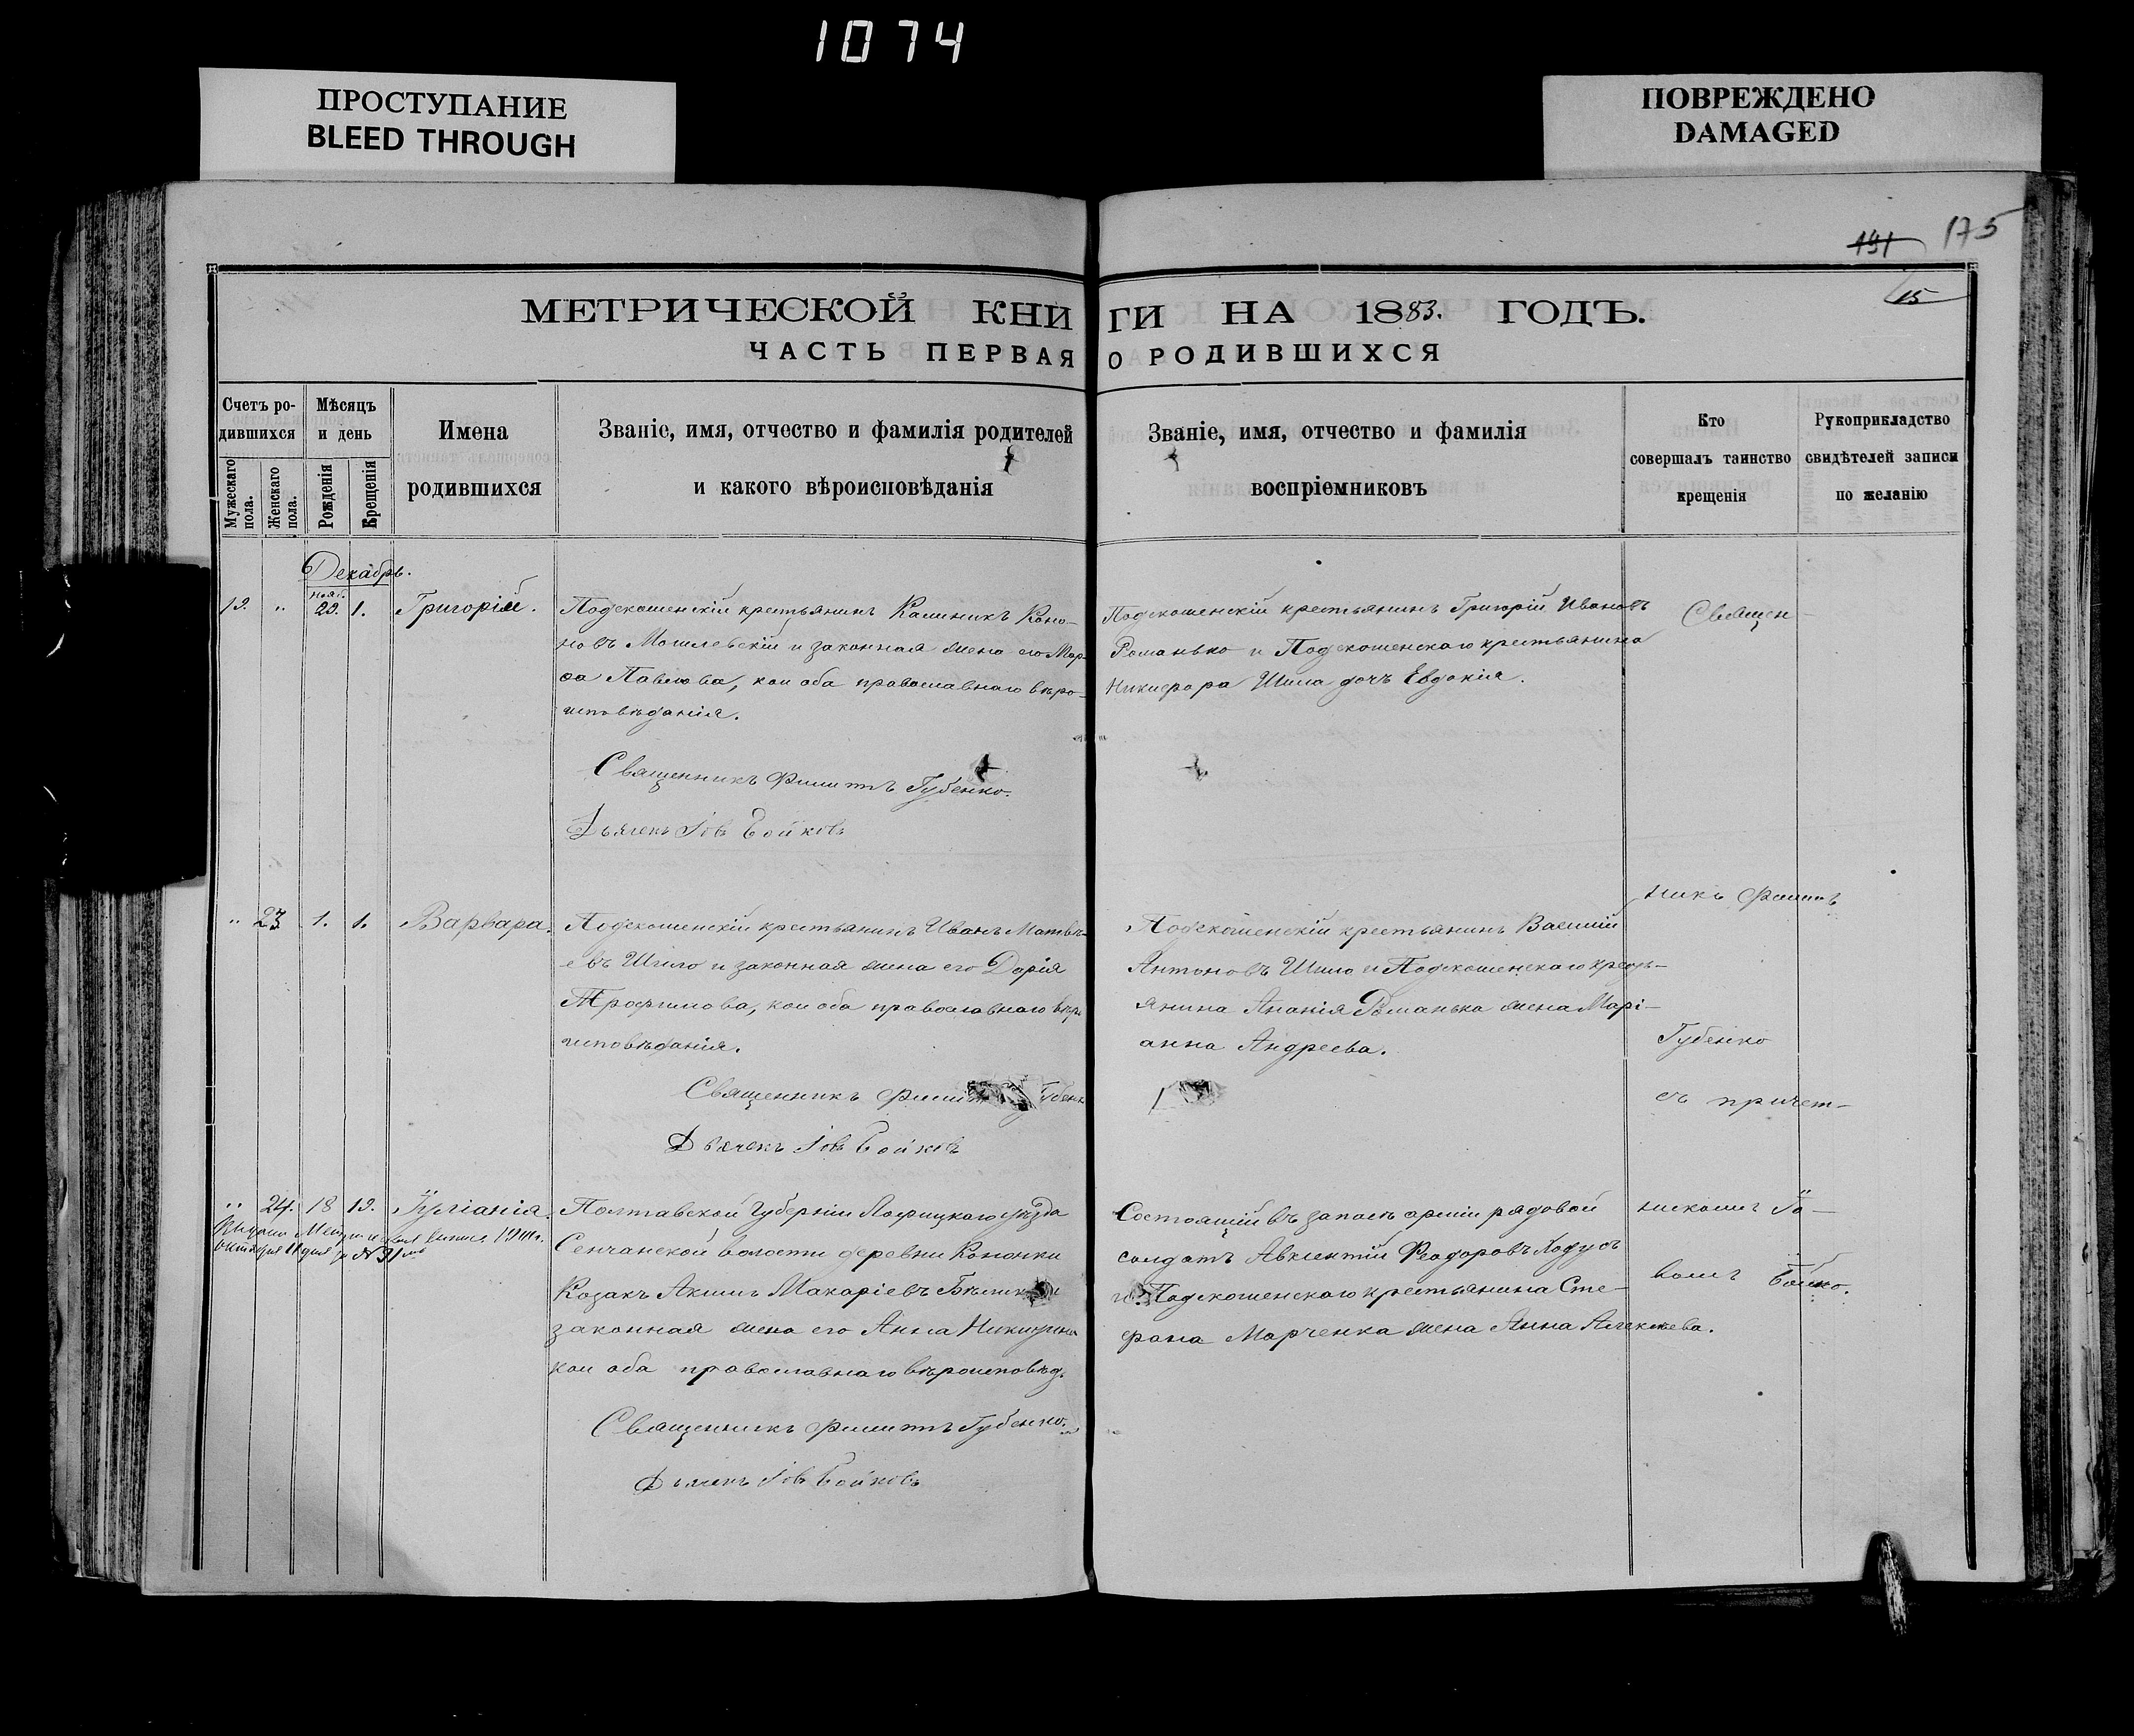 1074
ПРОСТУПАНИЕ
BLEED THROUGH
ПОВРЕЖДЕНО
DAMAGED
191 175
15
МЕТРИЧЕСКОЙ КНИ
ГИ НА 1883. ГОДЪ.
ЧАСТЬ ПЕРВАЯ
О РОДИВШИХСЯ
Счетъ ро-
дившихся
Мужескаго
пола.
Женскаго
пола.
Мѣсяцъ
и день
Рожденія
Крещенія
Имена
родившихся
Званіе, имя, отчество и фамилія родителей
и какого вѣроисповѣданія
Званіе, имя, отчество и фамилія
воспріемниковъ
Кто
совершалъ таинство
крещенія
Рукоприкладство
свидѣтелей записи
по желанію
Декабрь.
нояб.
19. " 29. 1. Григорій.
Подскошенскій крестьянинъ Калиникъ Коно-
новъ Могилевскій и законная жена его Мар-
фа Павлова, кои оба православнаго вѣро-
исповѣданія.
Священникъ Филиппъ Губенко.
Дьячекъ Іовъ Бойковъ
Подскошенскій крестьянинъ Григорій Ивановъ
Романько и Подскошенскаго крестьянина
Никифора Шила дочь Евдокія.
Священ-
" 23 1. 1. Варвара.
Подскошенскій крестьянинъ Иванъ Матвѣ-
евъ Шило и законная жена его Дарія
Трофимова, кои оба православнаго вѣро
исповѣданія.
Священникъ Губенк
Дьячекъ Іовъ Бойковъ
Подскошенскій крестьянинъ Василій
Антоновъ Шило и Подскошенскаго кресть-
янина Ананія Романька жена Марі-
анна Андреева.
никъ Филиппъ
Губенко
съ причет-
" 24. 18 19. Іуліанія.
октября 11 дня № 31
Полтавской Губерніи Лохвицкаго уѣзда
Сенчанской волости деревни Кононки
Козакъ Акимъ Макаріевъ
законная жена его Анна
кои оба православнаго вѣроисповѣд.
Священникъ Филиппъ Губенко.
Дьячекъ Іовъ Бойковъ
Состоящій въ запасѣ арміи рядовой
солдатъ Авксентій Феодоровъ Ходусъ
и Подскошенскаго крестьянина Сте-
фана Марченка жена Анна Алексѣева.
никомъ Іо-
вомъ Бойко.